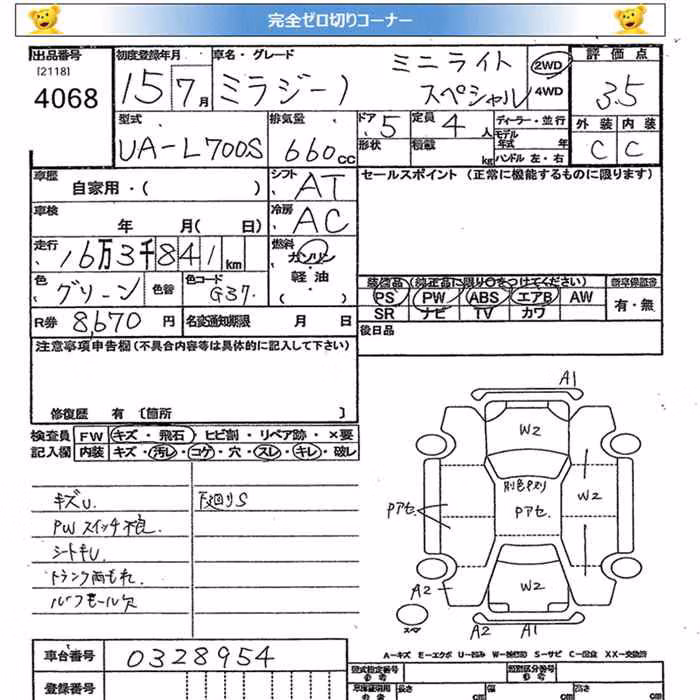 完全ゼロ切りコーナー
出品番号 初度登録年月 車名・グレード 評価点
[2118]
4068 15 7月 ミラジーノ ミニライト スペシャル 2WD 4WD 3.5
型式 排気量 ドア 定員 ディーラー・並行 外装 内装
UA-L700S 660cc 5 4人 モデル年式 年 C C
形状 積載 kg ハンドル 左・右
車歴 自家用・( ) シフト AT セールスポイント (正常に機能するものに限ります)
車検 年 月( 日) 冷房 AC
走行 16万3千841km 燃料 ガソリン 軽油 ( )
色 グリーン 色替 色コード G37 装備品 (純正品に限り○をつけてください) 新車保証書
PS PW ABS エアB AW 有・無
SR ナビ TV カワ
R券 8,670円 名変通知期限 月 日 後日品
注意事項申告欄 (不具合内容等は具体的に記入して下さい)
修復歴 有 [箇所 ]
検査員 FW キズ・飛石 ヒビ割・リペア跡・×要
記入欄 内装 キズ・汚レ・コゲ・穴・スレ・キレ・破レ
キズU. 下廻りS
PWスイッチ
トランク雨もれ.
ルーフモール欠
A1
W2
Pアセ. W2
Pアセ.
A2 W2
スペア
A2 A1
A-キズ E-エクボ U-凹み S-サビ C-腐食 XX-交換済
車台番号 0328954 型式指定番号 類別区分番号
登録番号 長さ cm 幅 cm 高さ cm